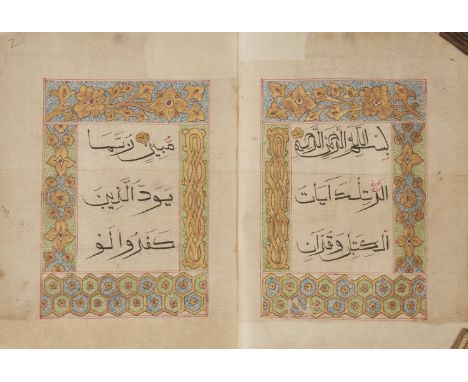 بسم الله الرحمن الرحيم
الر تلك آيات
الكتب وقران
مبين ربما
يود الذين
كفروا لو
2